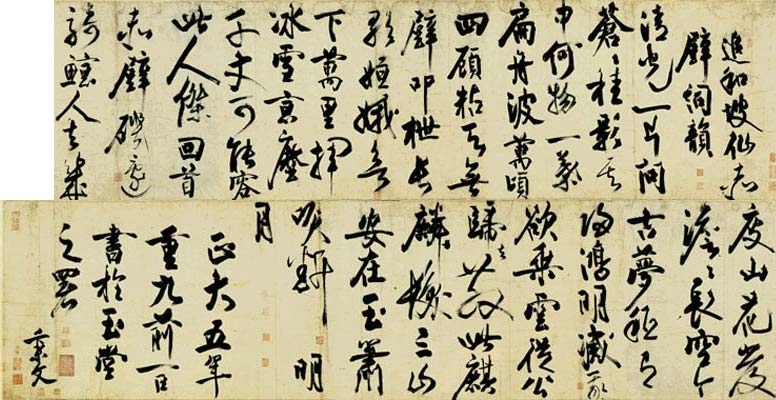 追和坡仙赤
壁詞韻
清光一片問
蒼蒼桂影其
中何物一葉
扁舟波萬頃
四顧粘天無
壁叩枻長
歌姮娥欲
下萬里揮
冰雪京塵
千丈可能容
此人傑回首
赤壁磯邊
騎鯨人去幾
度山花發
澹澹長空今
古夢秖有
歸鴻明滅我
欲乘雲從公
歸去散此麒
麟髮三山
安在玉簫
吹斷明
月
正大五年
重九前一日
書於玉堂
之署
秉文